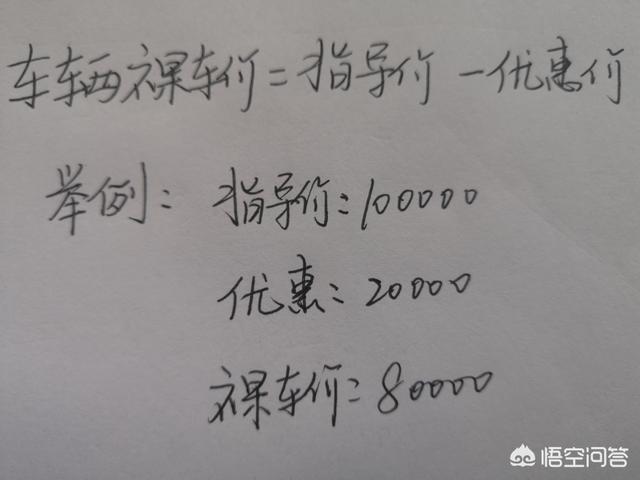 车辆裸车价=指导价-优惠价
举例：指导价：100000
优惠：20000
裸车价：80000
悟空问答